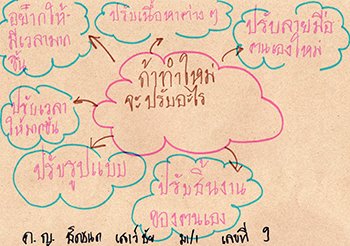 อยากให้
มีเวลามาก
ขึ้น
ปรับเนื้อหาต่าง ๆ
ปรับลายมือ
ตนเองใหม่
ถ้าทำใหม่
จะปรับอะไร
ปรับเวลา
ให้มากขึ้น
ปรับรูปแบบ
ปรับชิ้นงาน
ของตนเอง
ด.ญ. ม.1/1 เลขที่ 9